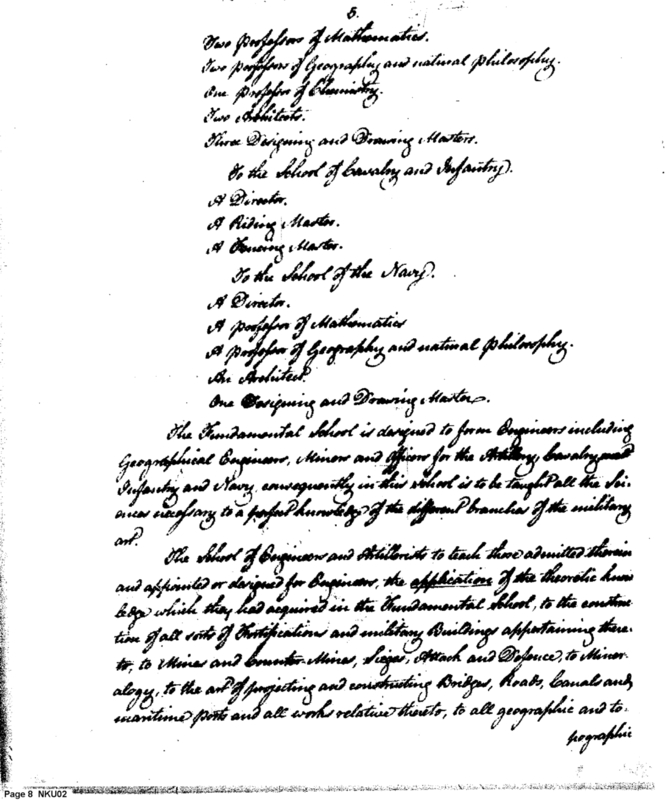 5.
Two Professors of Mathematics.
Two professors of Geography and natural Philosophy.
One professor of Chemistry.
Two Architects.
Three Designing and Drawing Masters.
To the School of Cavalry and Infantry.
A Director.
A Riding Master.
A Fencing Master.
To the School of the Navy.
A Director.
A professor of Mathematics
A professor of Geography and natural Philosophy.
An Architect.
One Designing and Drawing Master.
The Fundamental School is designed to form Engineers including
Geographical Engineers, Miners and officers for the Artillery, Cavalry and
Infantry and Navy, consequently in this school is to be taught all the Sci-
ences necessary to a perfect knowledge of the different branches of the military
art.
The School of Engineers and Artillerists to teach those admitted therein
and appointed or designed for Engineers, the application of the theoretic know
ledge which they had acquired in the Fundamental School, to the construc-
tion of all sorts of Fortifications and military Buildings appertaining there-
to, to Mines and Counter-Mines, Sieges, Attack and Defence, to Miner-
alogy, to the art of projecting and constructing Bridges, Roads, Canals and
maritime ports and all works relative thereto, to all geographic and to-
pographic
Page 8 NKU02